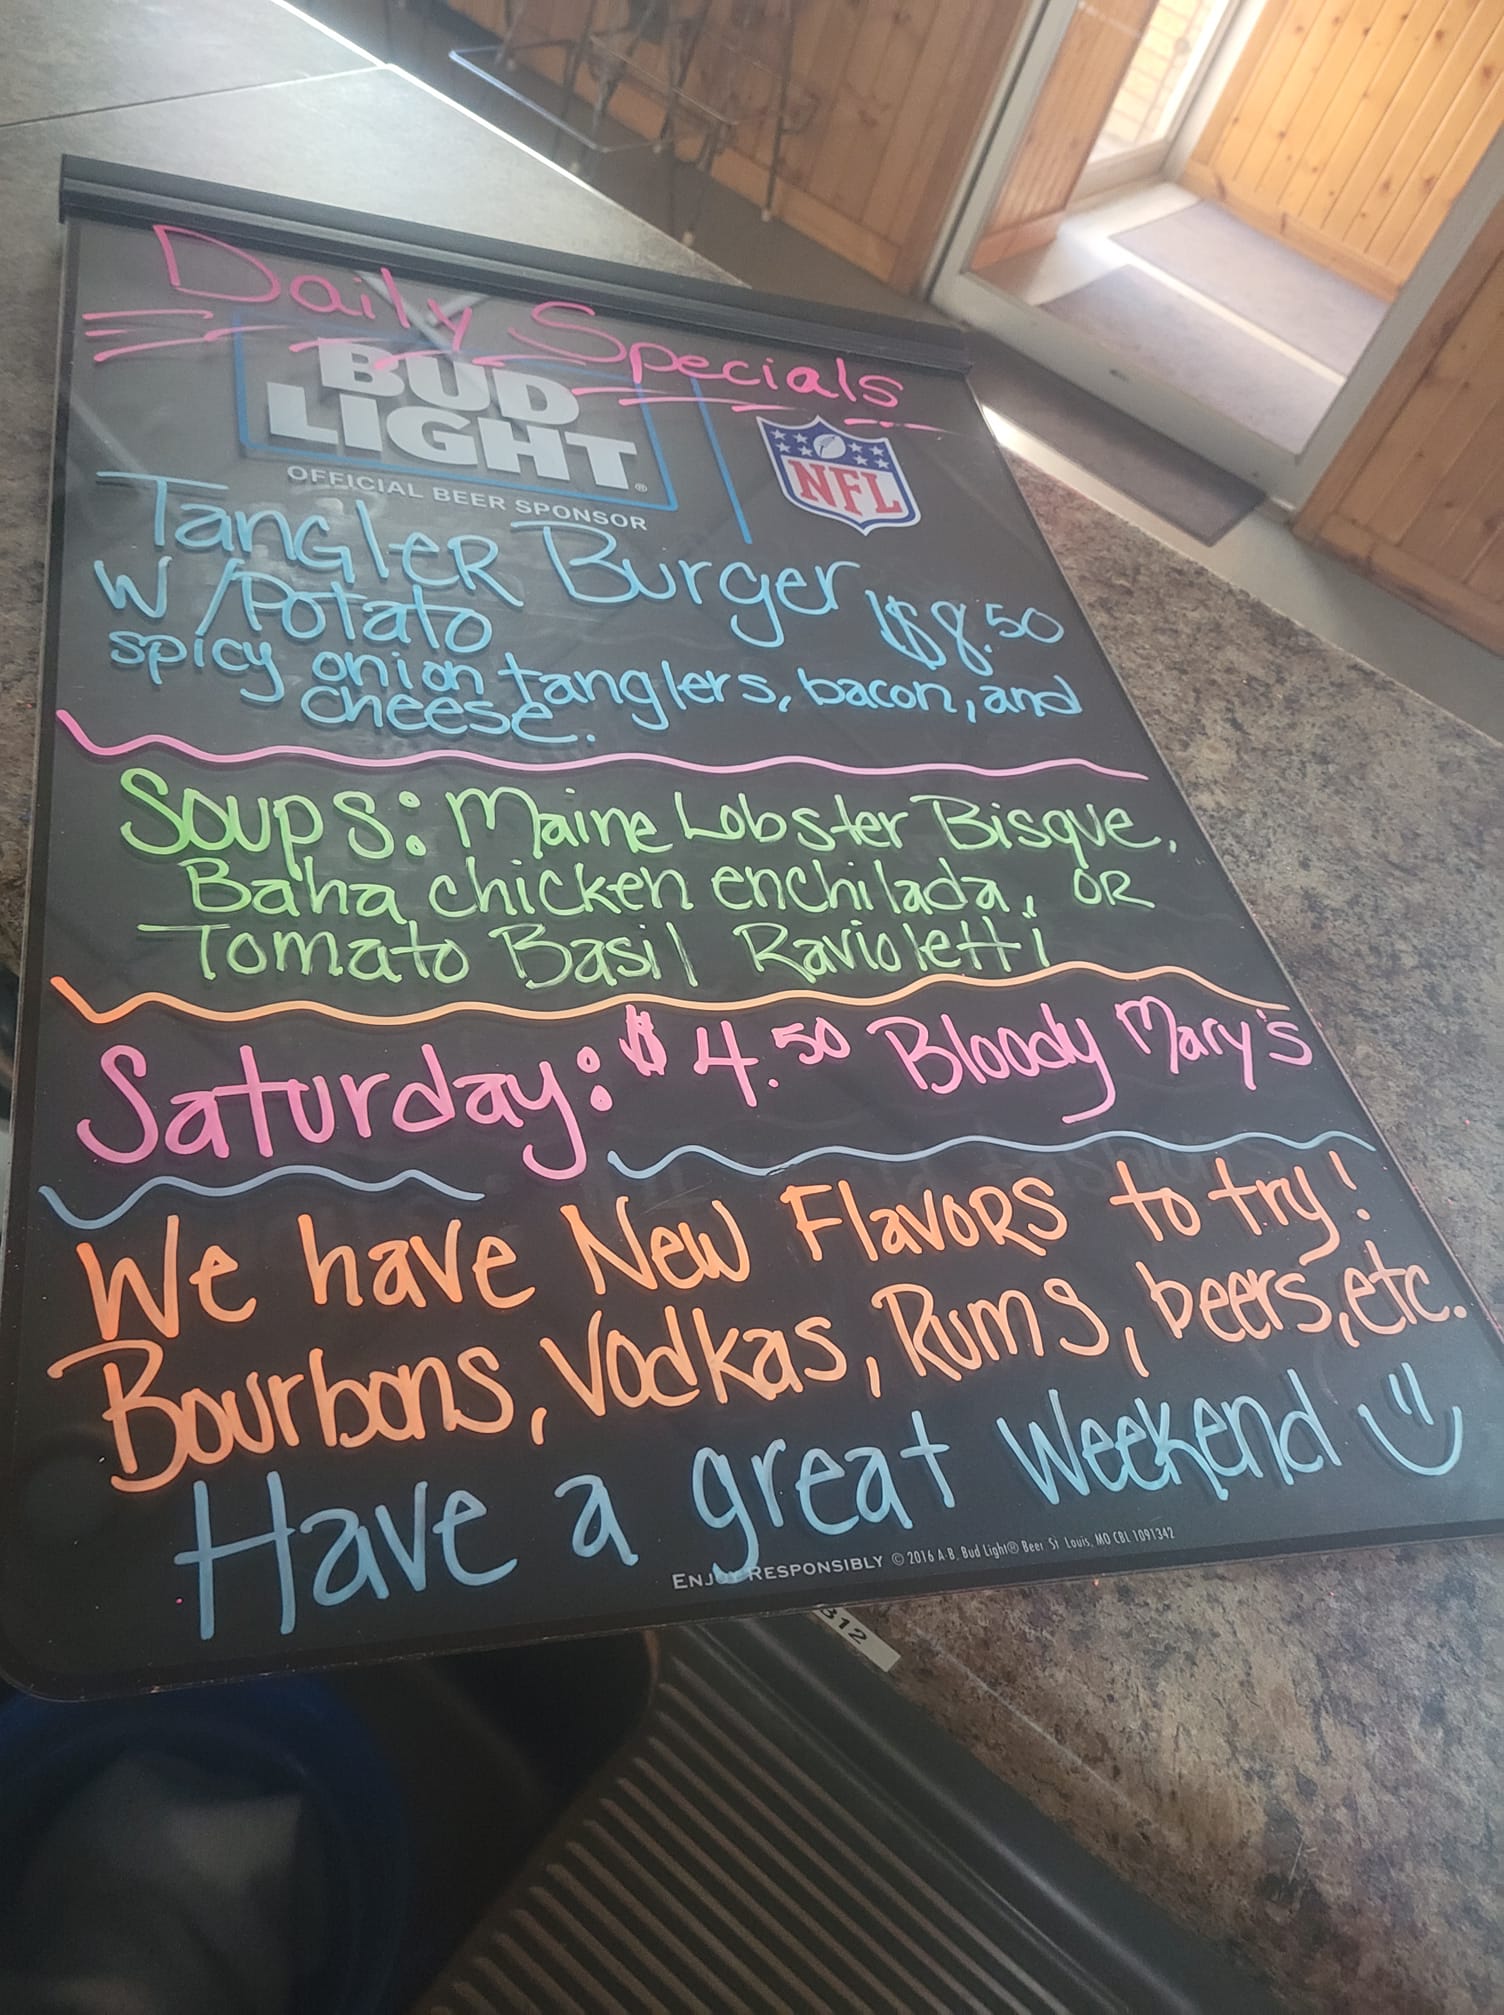 Daily Specials
BUD
LIGHT®
OFFICIAL BEER SPONSOR
NFL
TanGleR Burger $8.50
W/Potato
spicy onion tanglers, bacon, and
cheese.
Soups: Maine Lobster Bisque,
Baha chicken enchilada, OR
Tomato Basil Ravioletti
Saturday: $4.50 Bloody Mary's
We have New FlavoRS to try!
Bourbons, Vodkas, Rums, beers, etc.
Have a great Weekend
ENJOY RESPONSIBLY © 2016 A-B, Bud Light® Beer, St. Louis, MO CBL 1091342
312